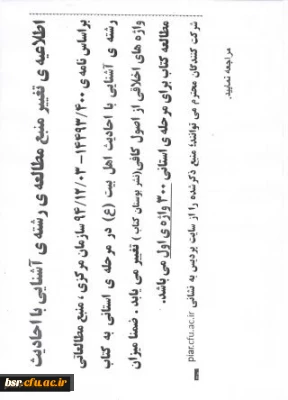 اطلاعیه ی تغییر منبع مطالعه ی رشته ی آشنایی با احادیث
براساس نامه ی ۱۴۴۹۳/۴۰۰-۹۴/۱۲/۰۳ سازمان مرکزی، منبع مطالعاتی
رشته ی آشنایی با احادیث اهل بیت (ع) در مرحله ی استانی به کتاب
واژه های اخلاقی از اصول کافی(نشر بوستان کتاب) تغییر می یابد. ضمنا میزان
مطالعه کتاب برای مرحله ی استانی ۳۰۰ واژه ی اول می باشد.
شرکت کنندگان محترم می توانند؛ منبع ذکرشده را از سایت پردیس به نشانی piar.cfu.ac.ir
مراجعه نمایید.
bsr.cfu.ac.ir